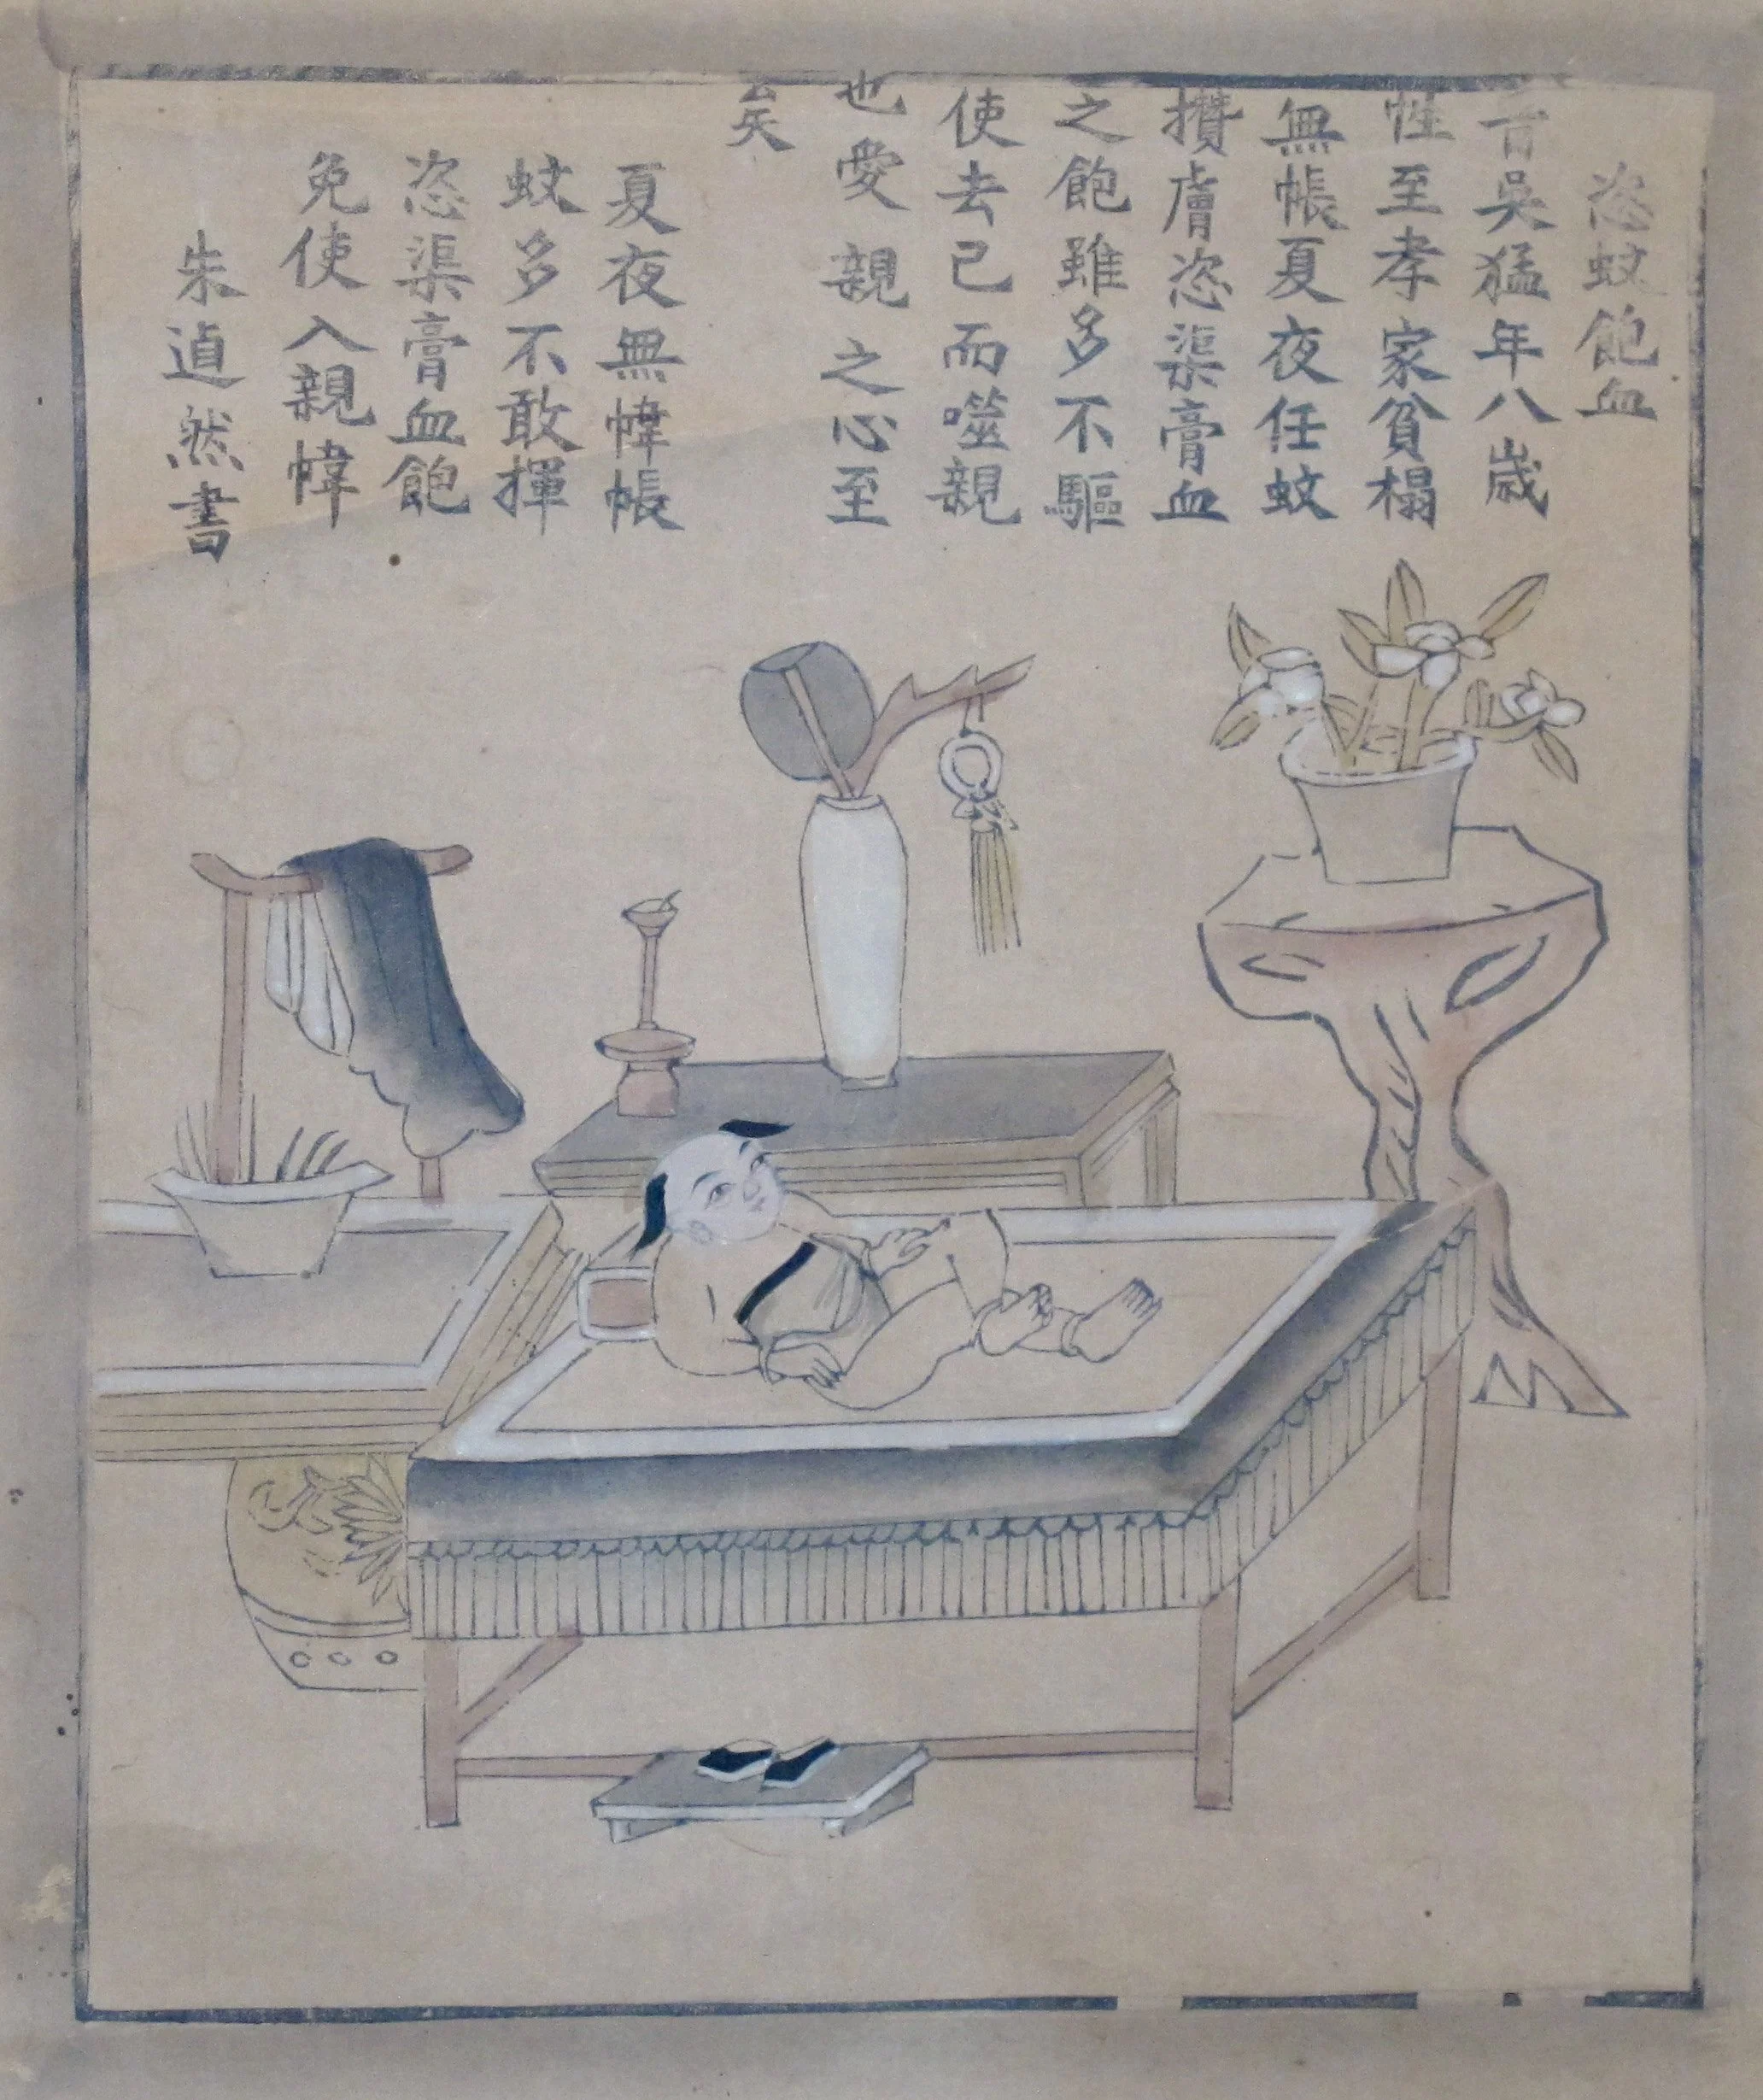 恣蚊飽血
晉吳猛年八歲
性至孝家貧榻
無帳夏夜任蚊
攢膚恣渠膏血
之飽雖多不驅
使去己而噬親
也愛親之心至
矣
夏夜無幃帳
蚊多不敢揮
恣渠膏血飽
免使入親幃
朱逌然書